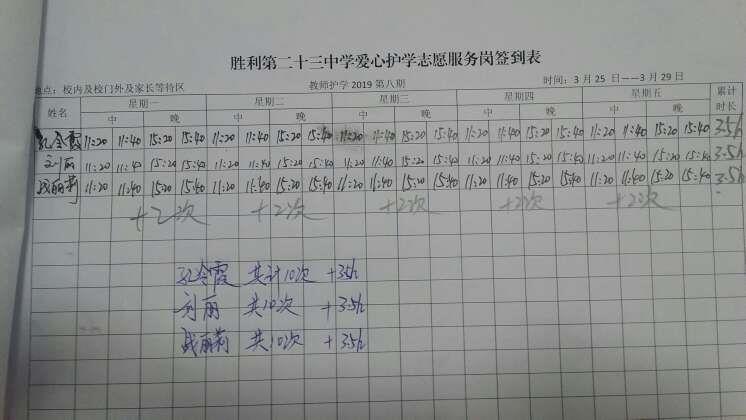 胜利第二十三中学爱心护学志愿服务岗签到表
地点：校内及校门外及家长等待区 教师护学2019第八期 时间：3月25日——3月29日
姓名 星期一 星期二 星期三 星期四 星期五 累计时长
中 晚 中 晚 中 晚 中 晚 中 晚
孔令霞 11:20 11:40 15:20 15:40 11:20 11:40 15:20 15:40 11:20 11:40 15:20 15:40 11:20 11:40 15:20 15:40 11:20 11:40 15:20 15:40 3.5h
刘丽 11:20 11:40 15:20 15:40 11:20 11:40 15:20 15:40 11:20 11:40 15:20 15:40 11:20 11:40 15:20 15:40 11:20 11:40 15:20 15:40 3.5h
战丽莉 11:20 11:40 15:20 15:40 11:20 11:40 15:20 15:40 11:20 11:40 15:20 15:40 11:20 11:40 15:20 15:40 11:20 11:40 15:20 15:40 3.5h
+2次 +2次 +2次 +2次 +2次
孔令霞 共计10次 +3.5h
刘丽 共10次 +3.5h
战丽莉 共10次 +3.5h